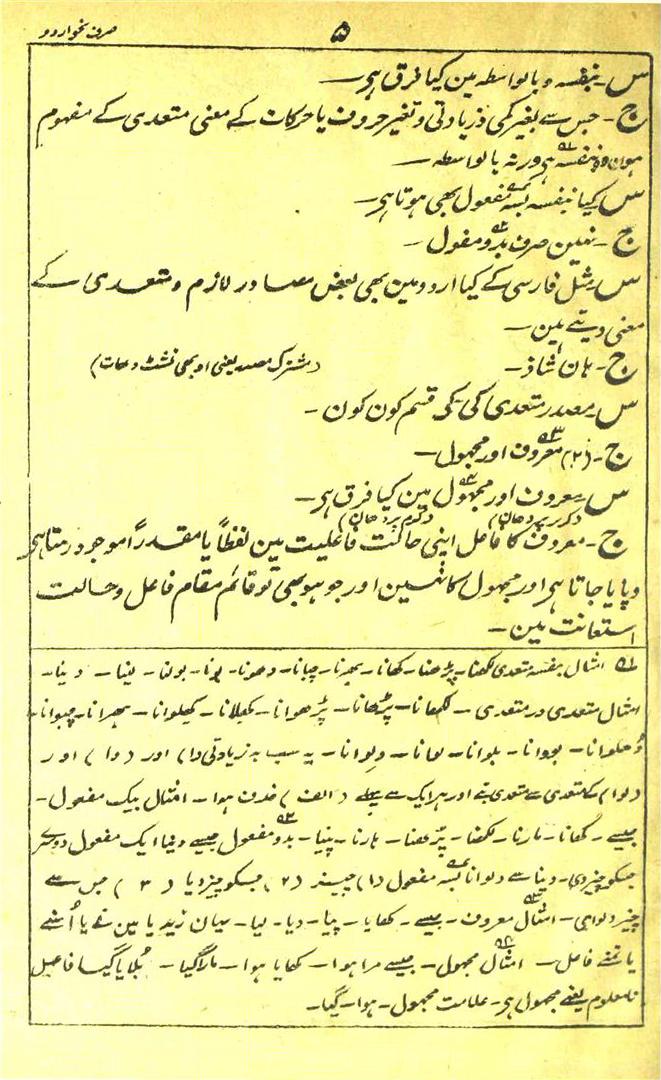 صرف نحو اردو
۵
س۔ بنفسہ و بالواسطہ مین کیا فرق ہی۔
ج۔ جس سے بغیر کمی و زیادتی و تغیر حروف یا حرکات کے معنی متعدی کے مفہوم
ہون وہ بنفسہ ہی ورنہ بالواسطہ۔
س۔ کیا بنفسہ بسہ مفعول بھی ہوتا ہی۔
ج۔ نہین صرف بدو مفعول۔
س۔ مثل فارسی کے کیا اردو مین بھی بعض مصادر لازم و متعدی کے
معنی دیتے ہین۔
ج۔ ہان شاذ۔ (مشترک مصدر یعنی
س۔ مصدر متعدی کی کَی قسم کون کون۔
ج۔ (۲) معروف اور مجہول۔
س۔ معروف اور مجہول مین کیا فرق ہی۔
ج۔ معروف کا فاعل اپنی حالت فاعلیت مین لفظاً یا مقدراً موجود رہتا ہی
و پایا جاتا ہی اور مجہول کا نہین اور جو ہو بھی تو قائم مقام فاعل و حالت
استعانت مین۔
۵۱ امثال بنفسہ متعدی لکھنا۔ پڑھنا۔ کھانا۔ بھرنا۔ چبانا۔ دھونا۔ بونا۔ بولنا۔ لینا۔ دینا۔
امثال متعدی در متعدی۔ لکھانا۔ پڑھانا۔ پڑھوانا۔ کھلانا۔ کھلوانا۔ بھرانا۔ چبوانا۔
دُھلوانا۔ بووانا۔ بلوانا۔ لوانا۔ دِلوانا۔ یہ سب بہ زیادتی (ا) اور (وا) اور
(لوا) کے متعدی سے متعدی بنے اور ہر ایک سے پہلے (الف) حذف ہوا۔ امثال بیک مفعول۔
جیسے۔ کھانا۔ مارنا۔ لکھنا۔ پڑھنا۔ ہارنا۔ پینا۔ بدو مفعول جیسے دینا ایک مفعول دوسرے
جسکو چیز دی۔ دینا سے دلوانا بسہ مفعول (۱) چیز (۲) جسکو چیز دیا (۳) جس سے
چیز دلوائی۔ امثال معروف۔ جیسے۔ کھایا۔ پیا۔ دیا۔ لیا۔ بیان زید یا مین نے یا اُسنے
یا تمنے فاعل۔ امثال مجہول۔ جیسے مرا ہوا۔ کھایا ہوا۔ مارا گیا۔ بُلایا گیا فاعل
نامعلوم یعنے مجہول ہی۔ علامت مجہول۔ ہوا۔ گیا۔